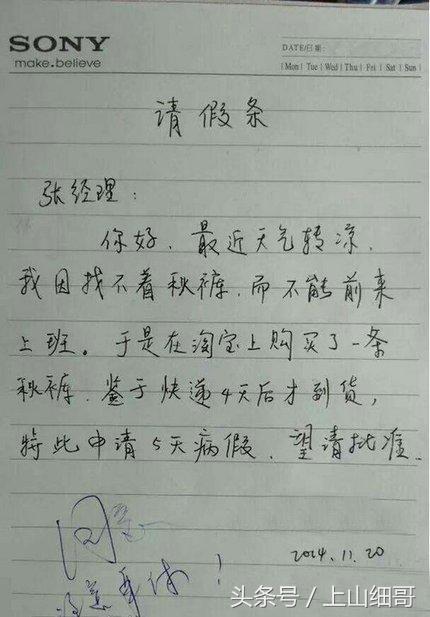 SONY
make.believe
DATE/日期:
Mon | Tue | Wed | Thu | Fri | Sat | Sun
请假条
张经理：
你好、最近天气转凉、
我因找不着秋裤、而不能前来
上班。于是在淘宝上购买了一条
秋裤、鉴于快递4天后才到货，
特此申请5天病假、望请批准.
同意
注意身体！
2014.11.20
头条号／上山细哥